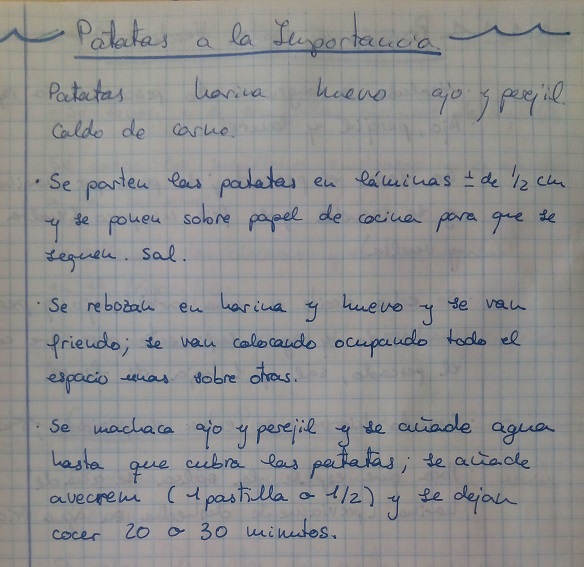 Patatas a la Importancia
Patatas harina huevo ajo y perejil
Caldo de carne.
· Se parten las patatas en láminas ± de 1/2 cm
y se ponen sobre papel de cocina para que se
sequen. Sal.
· Se rebozan en harina y huevo y se van
friendo; se van colocando ocupando todo el
espacio unas sobre otras.
· Se machaca ajo y perejil y se añade agua
hasta que cubra las patatas; se añade
avecrem (1 pastilla o 1/2) y se dejan
cocer 20 o 30 minutos.